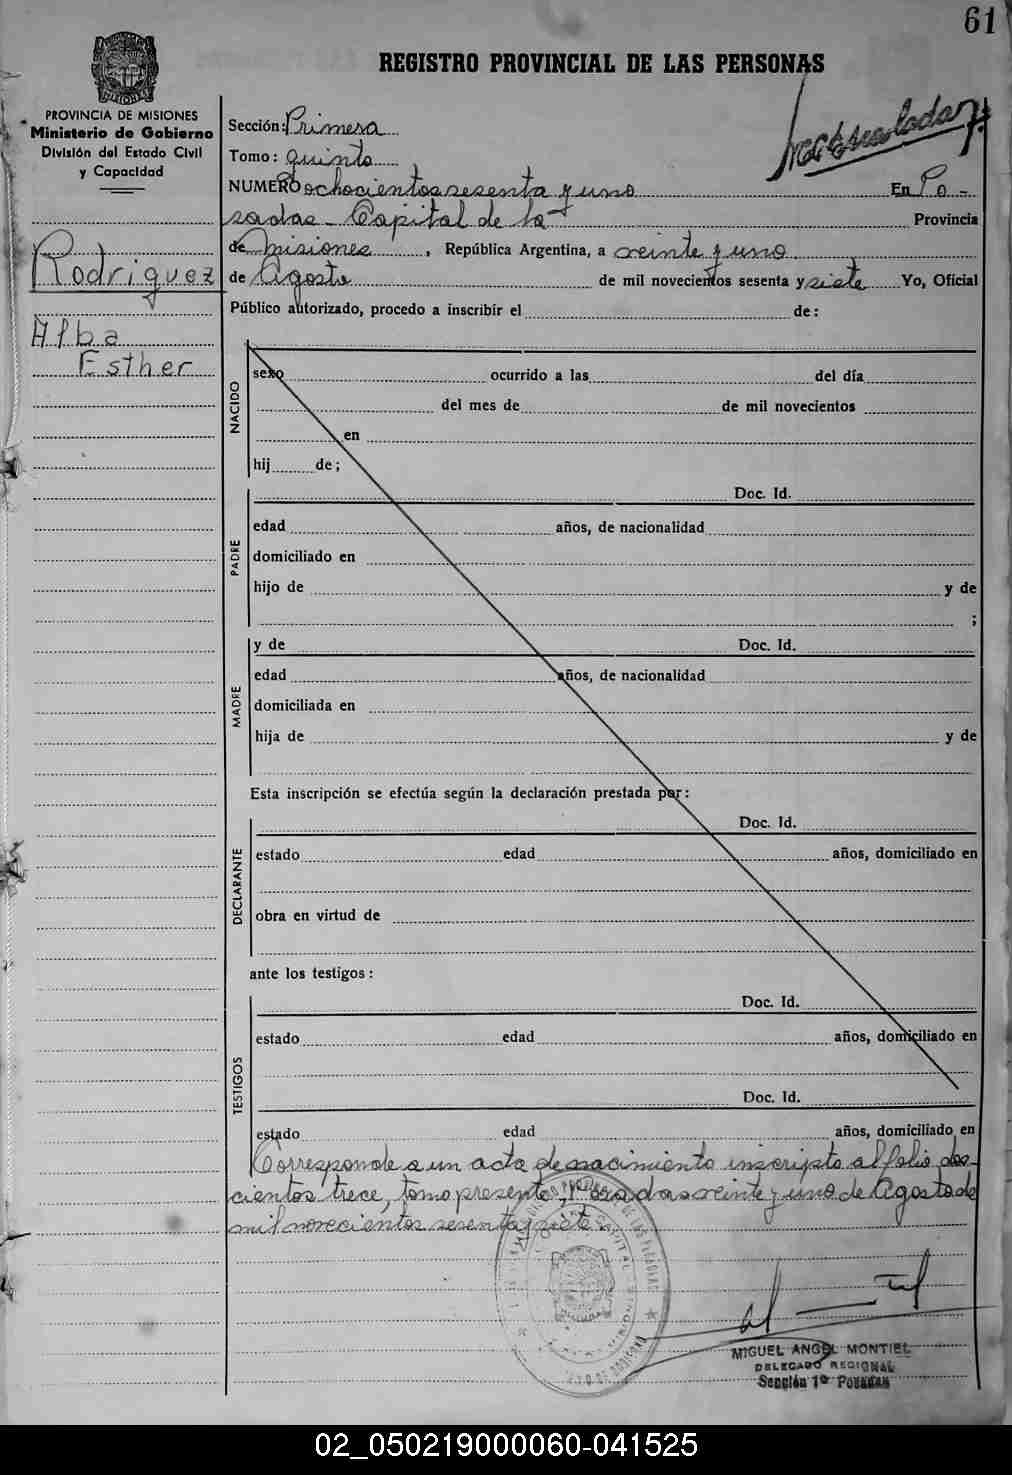 61
REGISTRO PROVINCIAL DE LAS PERSONAS
PROVINCIA DE MISIONES
Ministerio de Gobierno
División del Estado Civil
y Capacidad
Rodriguez
Alba
Esther
Sección: Primera
Tomo: quinto
NUMERO ochocientos sesenta y uno En Po-
sadas - Capital de la Provincia
de Misiones, República Argentina, a veinte y uno
de Agosto de mil novecientos sesenta y siete Yo, Oficial
Público autorizado, procedo a inscribir el de:
NACIDO
sexo ocurrido a las del día
del mes de de mil novecientos
en
hij de;
PADRE
Doc. Id.
edad años, de nacionalidad
domiciliado en
hijo de y de
;
MADRE
y de Doc. Id.
edad años, de nacionalidad
domiciliada en
hija de y de
Esta inscripción se efectúa según la declaración prestada por:
DECLARANTE
Doc. Id.
estado edad años, domiciliado en
obra en virtud de
ante los testigos:
TESTIGOS
Doc. Id.
estado edad años, domiciliado en
Doc. Id.
estado edad años, domiciliado en
Corresponde a un acta de nacimiento inscripto al folio dos-
cientos trece, tomo presente, Posadas veinte y uno de Agosto de
mil novecientos sesenta y siete.
MIGUEL ANGEL MONTIEL
DELEGADO REGIONAL
Sección 1º Posadas
02_050219000060-041525